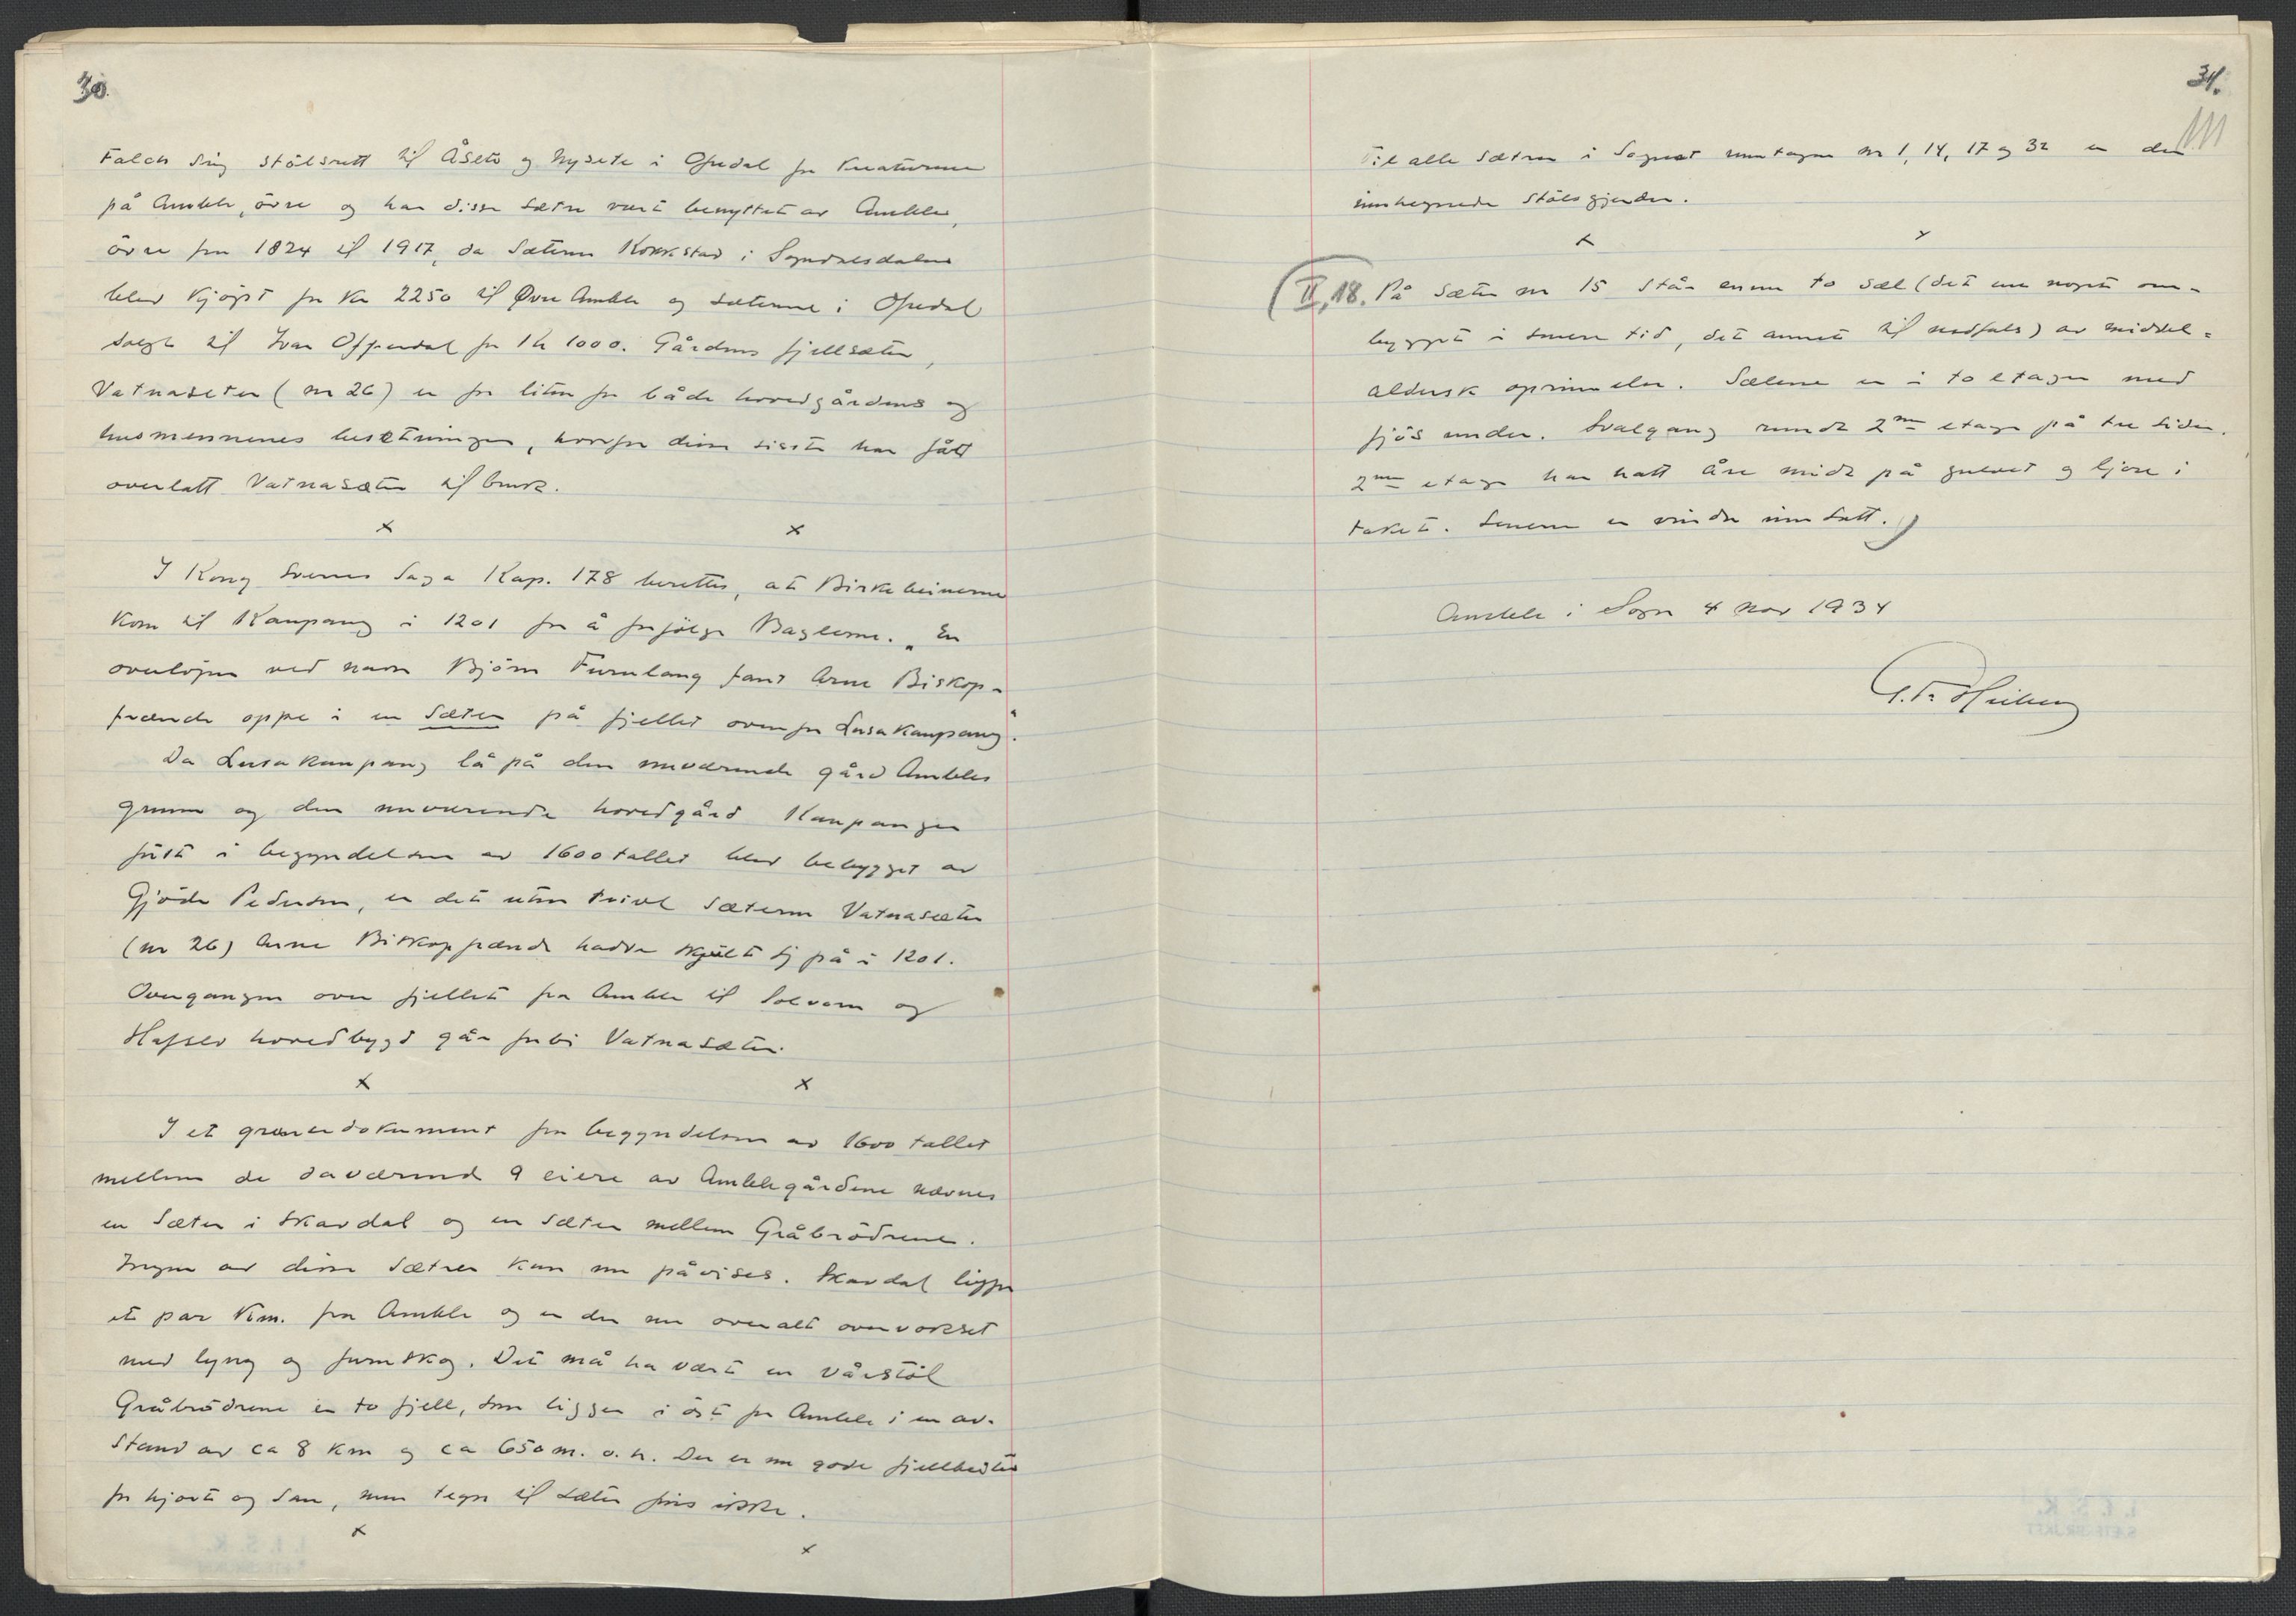 30.
Falch sig stölsrett til Åsete og Nysete i Ofredal for kreaturene
på Amble, övre og har disse sætre vært benyttet av Amble,
övre fra 1824 til 1917, da sæteren Kokkstad i Sogndalsdalen
blev kjöpt for Kr 2250 til Övre Amble og sæterne i Ofredal
solgt til Ivar Offerdal for Kr 1000. Gårdens fjellsæter,
Vatnaseter (nr 26) er for liten for både hovedgårdens og
husmennenes besetninger, hvorfor disse siste har fått
overlatt Vatnasæter til bruk.
x x
I Kong Sverres Saga Kap. 178 berettes, at Birkebeinerne
kom til Kaupang i 1201 for å forfölge Baglerne. „En
overlöper ved navn Björn Furulang fant Arne Biskop-
frænde oppe i en Sæter på fjellet ovenfor Lusakaupang“.
Da Lusakaupang lå på den nuværende gård Ambles
grunn og den nuværende hovedgård Kaupanger
först i begyndelsen av 1600 tallet blev bebygget av
Gjöde Pedersen, er det uten tvivl sæteren Vatnasæter
(nr 26) Arne Biskopfrænde hadde skjult sig på i 1201.
Overgangen over fjellet fra Amble til Solvorn og
Hafslo hovedbygd går forbi Vatnasæter.
x x
I et grensedokument fra begyndelsen av 1600 tallet
mellem de daværend 9 eiere av Amblegårdene nævnes
en Sæter i Skardal og en sæter mellem Gråbrödrene.
Ingen av disse sætrer kan nu påvises. Skardal ligger
et par km. fra Amble og er der nu overalt overvokset
med lyng og furuskog. Det må ha vært en vårstöl
Gråbrödrene er to fjell, som ligger i öst for Amble i en av-
stand av ca 8 km og ca 650 m. o. h. Der er nu gode fjellbeiter
for hjort og sau, men tegn til sæter fins ikke.
x x
31.
111
Til alle sætrer i Sognet unntagen nr 1, 14, 17 og 32 er der
innhegnede stölsgjerder.
x x
(II, 18. På sæter nr 15 står ennu to sæl (det ene noget om-
bygget i senere tid, det annet til nedfals) av middel-
aldersk oprinnelse. Sælene er i to etager med
fjös under. Svalgang rundt 2nen etage på tre sider.
2nen etage har hatt åre midt på gulvet og ljore i
taket. Senere er vinduer innsatt.)
Amble i Sogn 4 nov 1934
G. F. Heiberg